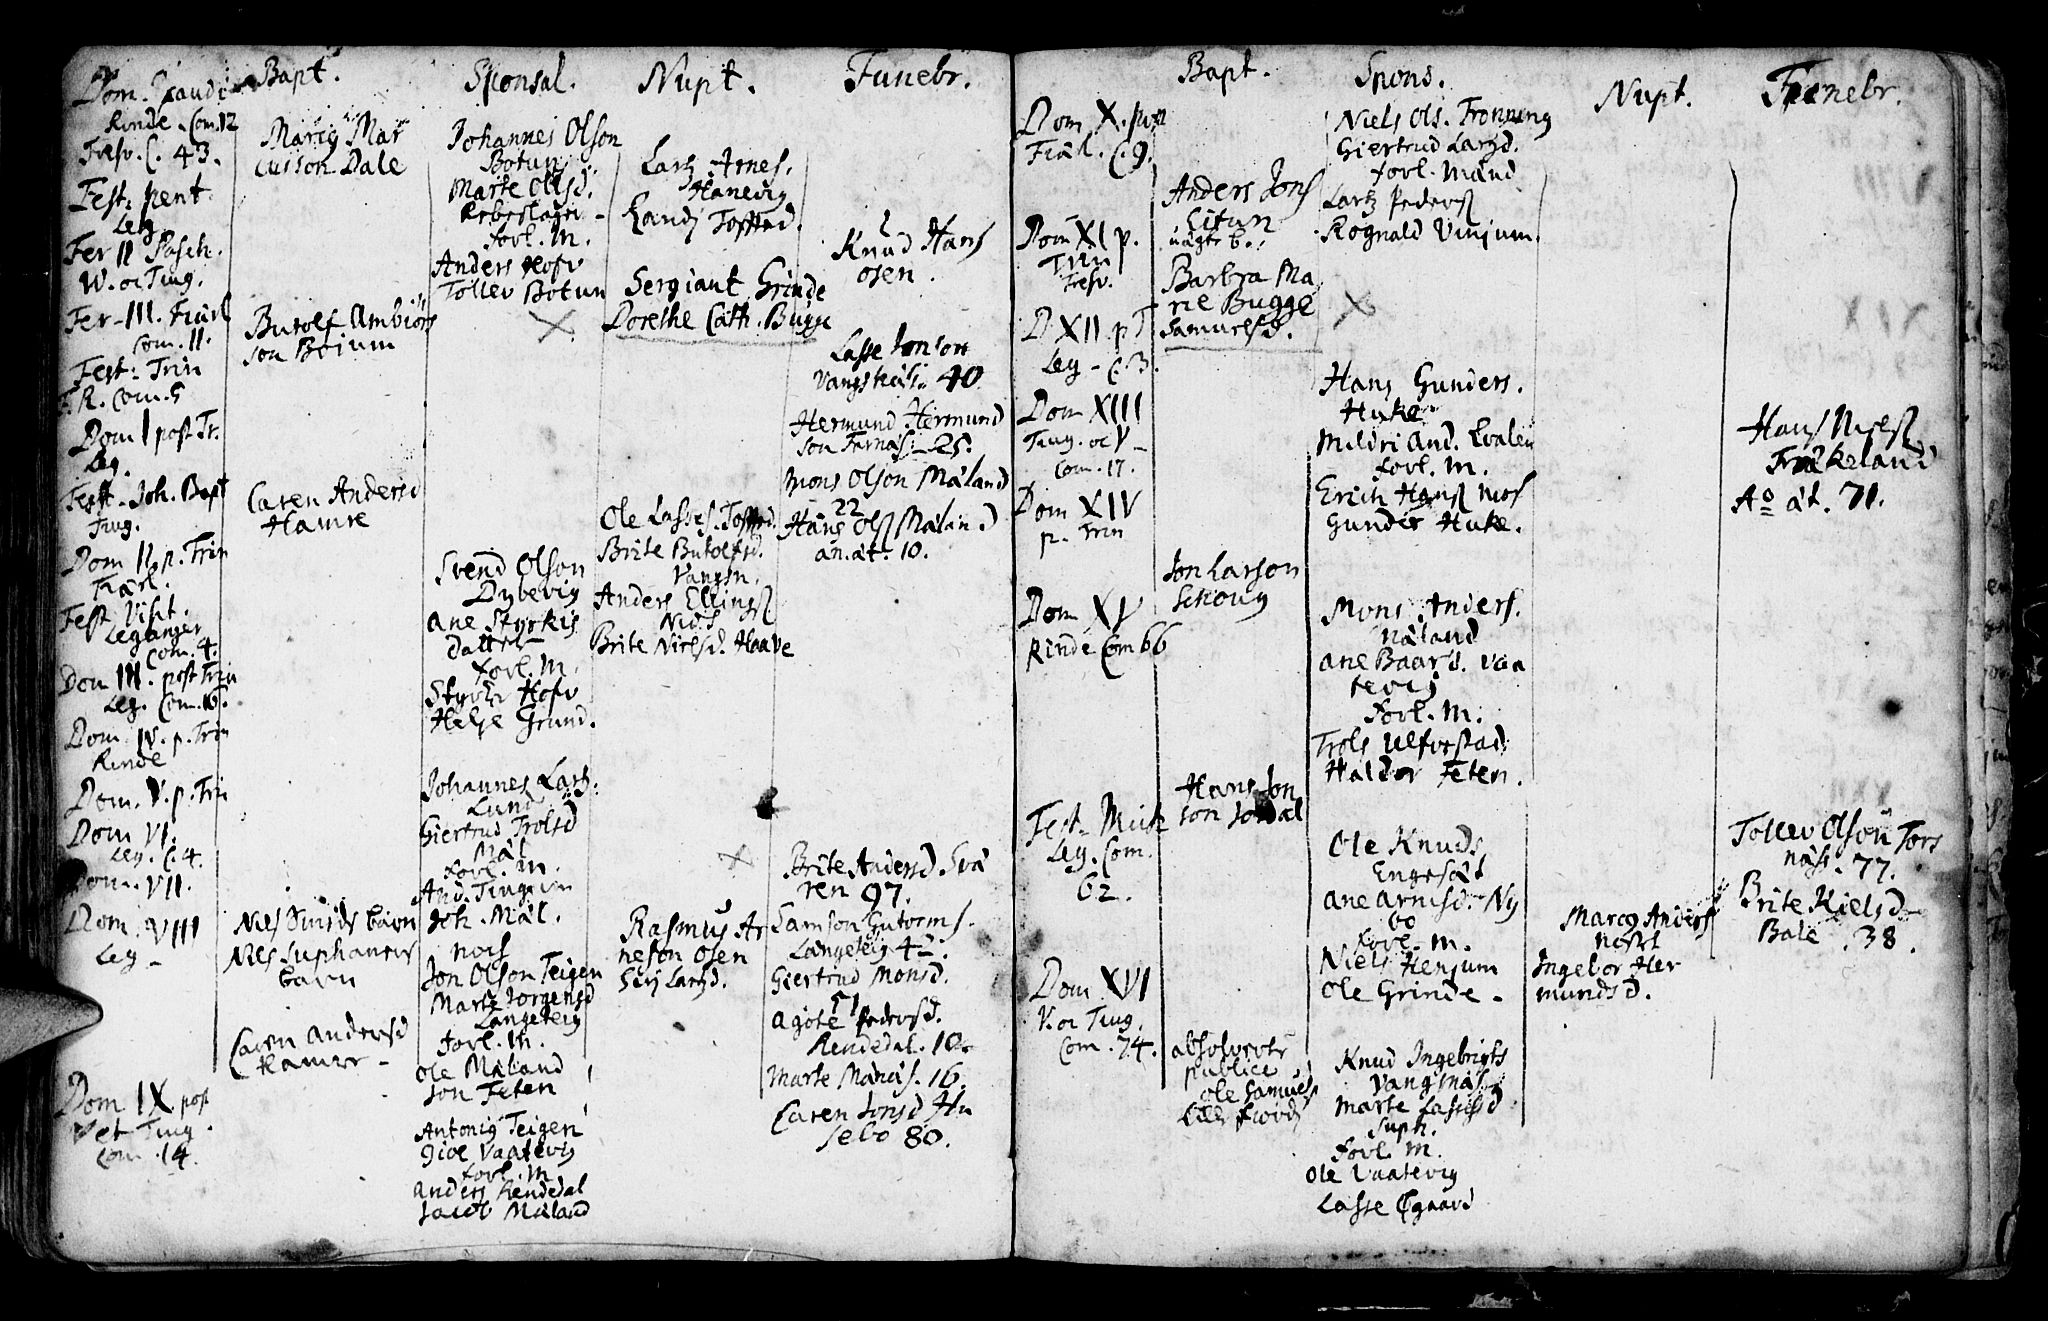 Bapt.
Sponsal.
Nupt.
Funebr.
Dom. Exaudi
Rinde. Com. 12
Fresv. C. 43.
Fest: pent.
Leg.
Fer II Pasch.
W. oc Ting.
Fer. III. Fiærl
Com. 11.
Fest: Trin
F. R. Com. 5
Dom I post Tr.
Leg.
Fest. Joh. Bapt
Ting.
Dom II p. Trin
Fiærl.
Fest Visit.
Leganger
Com. 4.
Dom III. post Trin
Leg. Com. 16.
Dom. IV. p. Trin
Rinde
Dom. V. p. Trin
Dom VI.
Leg. C. 4.
Dom. VII.
Dom. VIII
Leg -
Dom IX post
V et Ting.
Com. 14.
Marcg Mar
cusson Dale
Butolf Ambiörs
son Boium
Caren Andersd
Hamre
Niels Smids barn
Niels Suphaners
barn
Caren Andersd
Hamre -
Johannes Olson
Botun
Marte Olsd.
Rebslager -
forl. M.
Anders Hofv
Tollev Botun
Svend Olson
Dybevig
Ane Styrkis
datter
forl. M.
Styrk Hofv
Helge Grund.
Johannes Lars:
Lund
Giertrud Trolsd
Mæl
forl. M.
And. Tingvim
Joh. Mæl.
nock
Jon Olson Teigen
Marte Jorgensd
Langeteig
forl. M.
Ole Mæland
Jon Feten
Antonig Teigen
Give Vaatevig
forl. M
Anders Rendedal
Jacob Mæland
Lars Arnes.
Hanevig
Randj Toftad.
Sergiant Grinde
Dorethe Cath. Bugge
Ole Lasses. Toftad.
Brite Butolfsd.
Vangsn.
Anders Ellingss
Nids
Brite Nielsd. Haave
Rasmus Ar
neson Osen
Siri Larsd.
Knud Hans
osen.
Lasse Jonson
Vangsnæs. 40
Hermund Hermund
son Farnæs. 25.
Mons Olson Mæland
22
Hans Olss Mæland
an. æt. 10.
Brite Andersd. Svæ
ren 97.
Samson Gutorms.
Langeteig 42.
Giertrud Monsd.
51
Agote Pedersd.
Rendedal. 10.
Marte Manæs. 16.
Caren Jonsd Hu
sebo 80.
Bapt.
Spons.
Nupt.
Funebr.
Dom X. post
Fiæl. C. 9.
Dom XI p.
Trin
Fresv.
D. XII. p T
Leg - C. 3.
Dom XIII
Ting. oc V -
Com. 17.
Dom XIV
p. Trin
Dom XV
Rinde Com 66
Fest. Mich
Leg. Com.
62.
Dom XVI
V. oc Ting.
Com. 74.
Anders Jons
Eitun
uægte b.
Barbra Ma
rie Bugge
Samuelsd.
Jon Larson
Schoug
Hans Jon
son Jordal
absolverte
publice
Ole Samuels
Lille Fiords
Niels Ols. Fronning
Giertrud Larsd.
forl. Mænd
Lars Pederss
Rognald Vinjum.
Hans Gunders.
Huke
Mildri And. Evalen
forl. M.
Erich Hanss Mos
Gunder Huke.
Mons Anders.
Næland
Ane Baars. Vaa
tevig
forl. M.
Trols Ulfvestad
Haldor Feten.
Ole Knuds
Engesæt
Ane Arnisd. Ny
bo
forl. M.
Niels Henjum
Ole Grinde -
Knud Ingebrigts
Vangsnæs
Marte Lassesd
Suph.
forl. M.
Ole Vaatevig
Lasse Øgaard
Marcg Anders
Ingebor Her
mundsd.
Hans Nielss
Frækeland
Ao æt. 71.
Tollev Olson Tors
næss. 77.
Brite Kielsd.
Bale. 38.